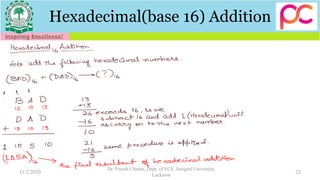 Hexadecimal(base 16) Addition
Inspiring Excellence!
Hexadecimal Addition
Ado add the following hexadecimal numbers
(BAD)16 + (DAD)16 → (?)16
1 1 1
B A D
12 10 13
D A D
+ 13 10 13
1 10 5 10
(1A5A)16
13
+13
26 exceeds 16, so we
-16 subtract 16 and add 1 (Hexadecimal) unit
10 as carry on to the next number.
21
-16 same procedure is applied.
5
the final resultant of hexadecimal addition
11/2/2020
Dr. Piyush Charan, Dept. of ECE, Integral University, Lucknow
23